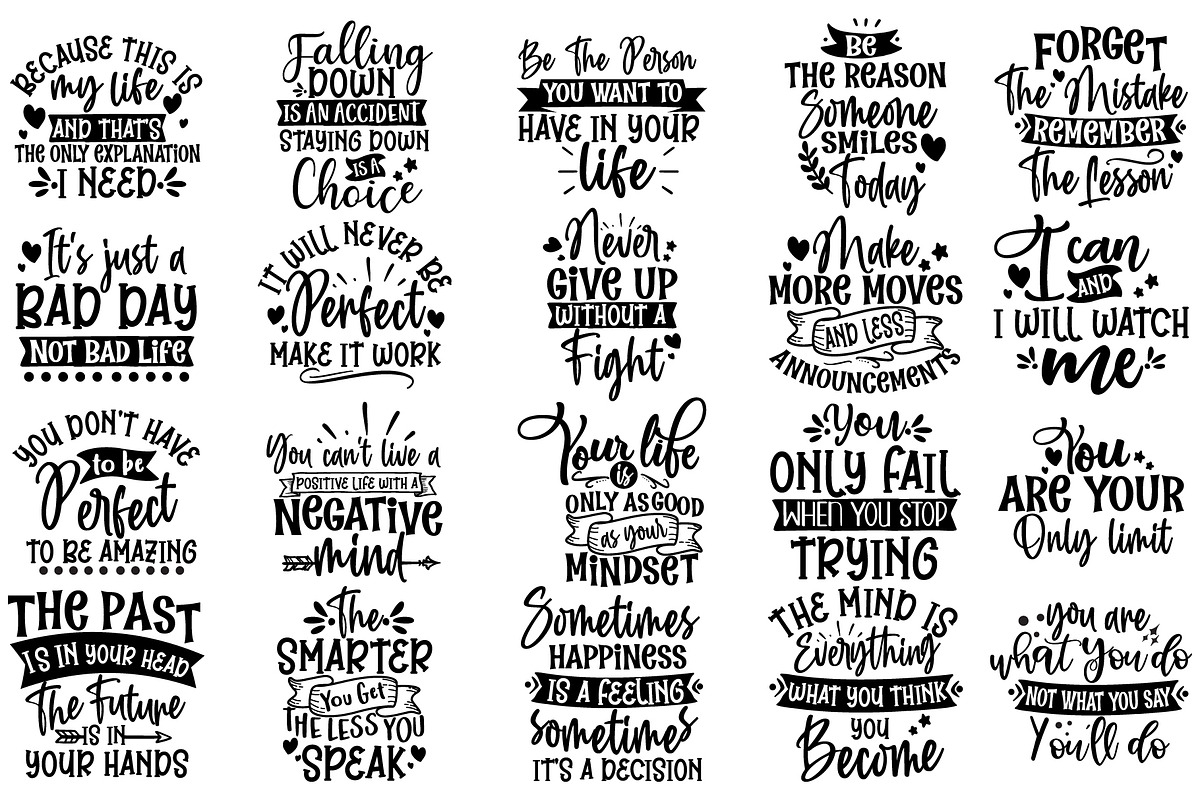 BECAUSE THIS IS
my life
AND THAT'S
THE ONLY EXPLANATION
I NEED
Falling
DOWN
IS AN ACCIDENT
STAYING DOWN
IS A
Choice
Be The Person
YOU WANT TO
HAVE IN YOUR
life
BE
THE REASON
Someone
SMILES
Today
FORGET
The Mistake
REMEMBER
The Lesson
It's just a
BAD DAY
NOT BAD LIFE
IT WILL NEVER BE
Perfect
MAKE IT WORK
Never
GIVE UP
WITHOUT A
Fight
Make
MORE MOVES
AND LESS
ANNOUNCEMENTS
I can
AND
I WILL WATCH
me
YOU DON'T HAVE
to be
Perfect
TO BE AMAZING
You can't live a
POSITIVE LIFE WITH A
NEGATIVE
mind
Your life
is
ONLY AS GOOD
as your
MINDSET
You
ONLY FAIL
WHEN YOU STOP
TRYING
You
ARE YOUR
Only limit
THE PAST
IS IN YOUR HEAD
The Future
IS IN
YOUR HANDS
The
SMARTER
You Get
THE LESS YOU
SPEAK
Sometimes
HAPPINESS
IS A FEELING
sometimes
IT'S A DECISION
THE MIND IS
Everything
WHAT YOU THINK
YOU
Become
you are
what you do
NOT WHAT YOU SAY
You'll do